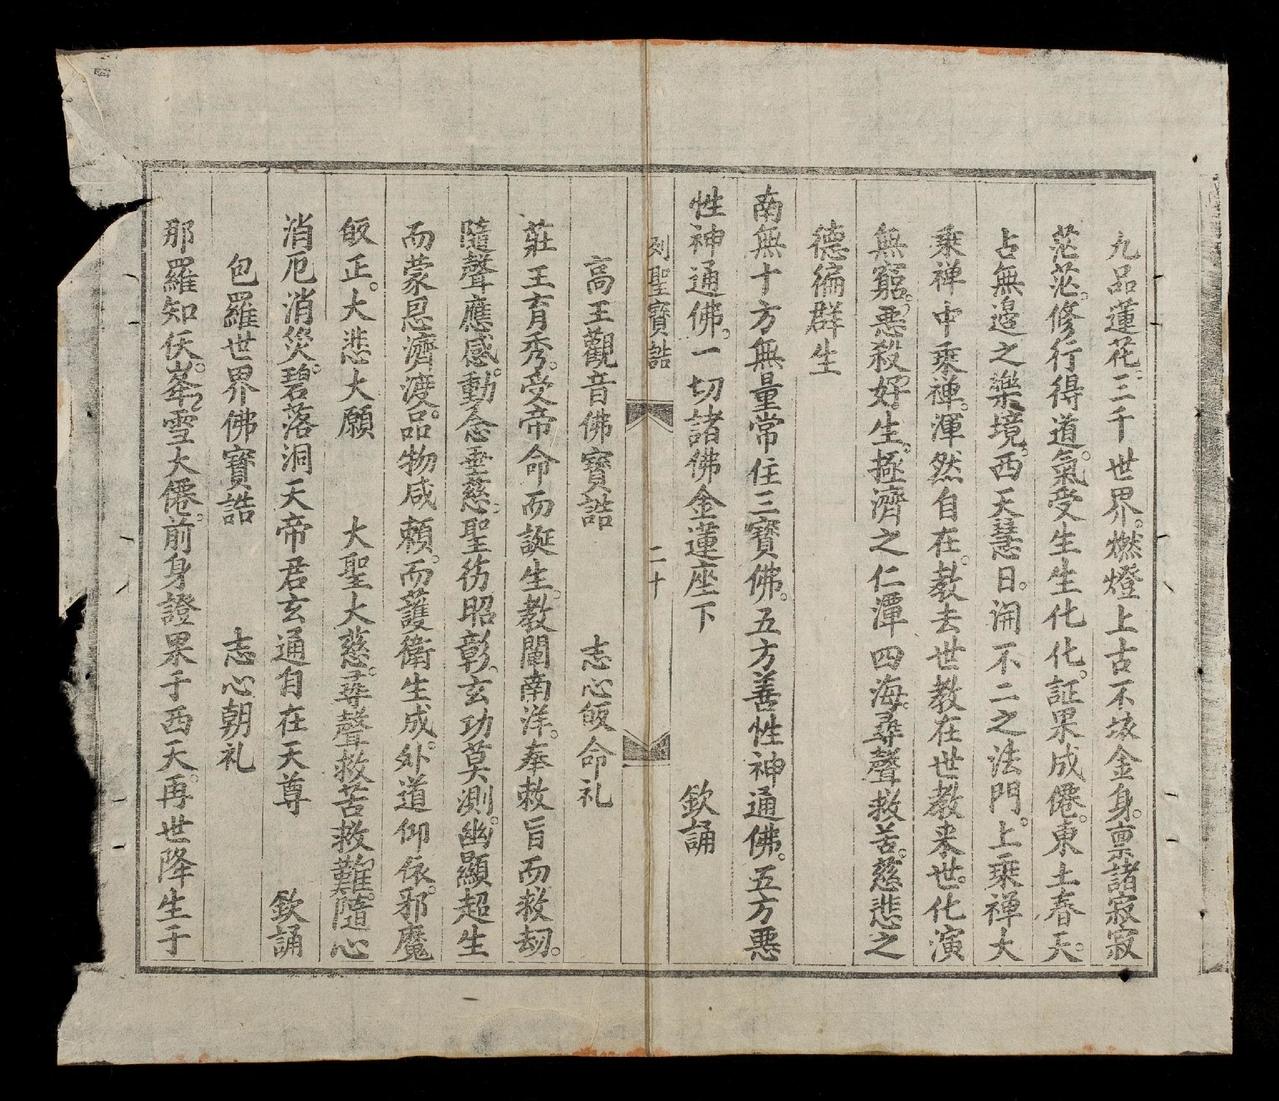 九品蓮花三千世界。燃燈上古不垓金身。禀諸寂寂
茫茫。修行得道。氣受生生化化。証果成僊。東土春天。
占無邊之樂境。西天慧日。開不二之法門。上乘禅大
乘禅中乘禅。渾然自在。教去世教在世教来世。化演
無窮。悪殺好生。拯濟之仁潭四海。尋聲救苦。慈悲之
德徧群生
南無十方無量常住三寶佛。五方善性神通佛。五方悪
性神通佛。一切諸佛金蓮座下 欽誦
列聖寶誥 二十
高王觀音佛寶誥 志心皈命礼
莊王育秀。受帝命而誕生。教闡南洋。奉敕旨而救刼。
隨聲應感。動念垂慈。聖彷昭彰。玄功莫測。幽顯超生
而蒙恩濟渡。品物咸頼。而護衛生成。外道仰依。邪魔
皈正。大悲大願 大聖大慈。尋聲救苦救難。隨心
消厄消災。碧落洞天帝君玄通自在天尊 欽誦
包羅世界佛寶誥 志心朝礼
那羅知伕。峯雪大僊。前身證果于西天。再世降生于